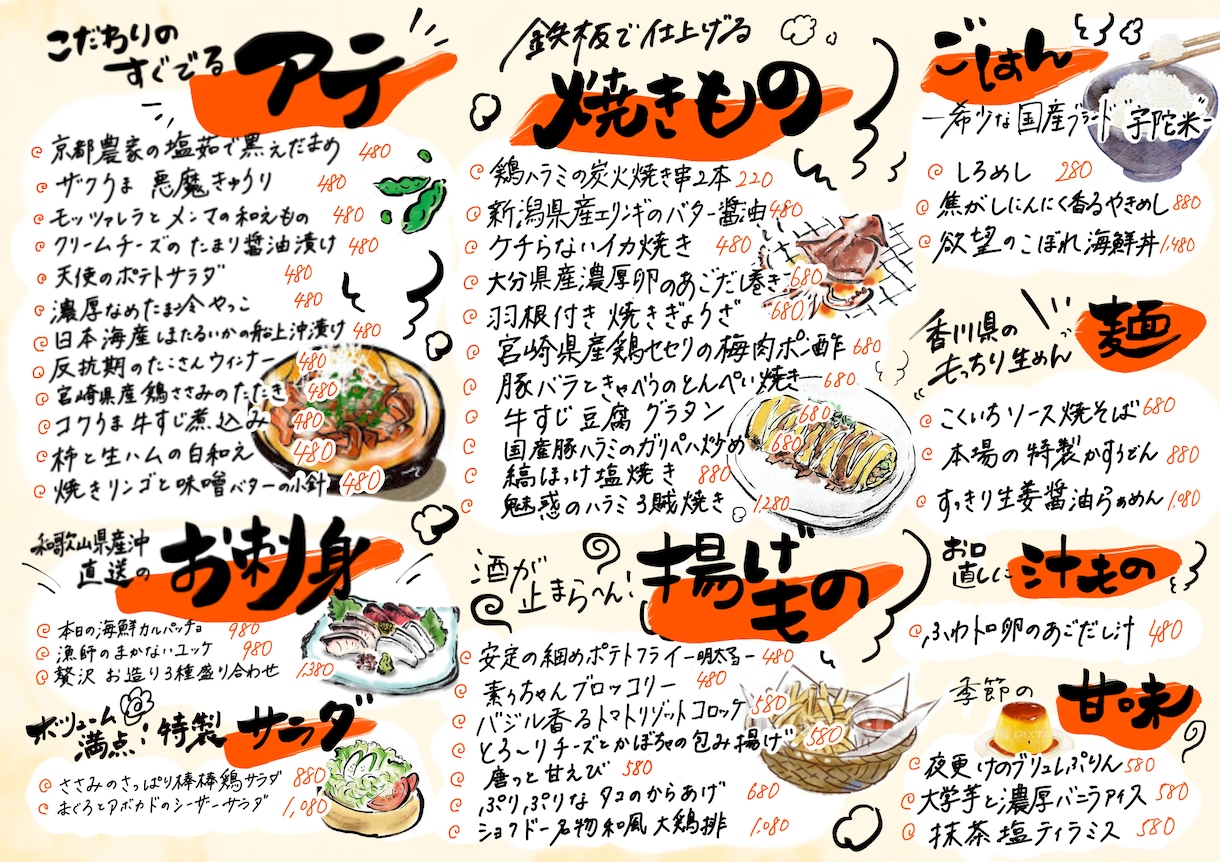 こだわりの
すぐでる
アテ
京都農家の塩茹で黒えだまめ 480
ザクうま 悪魔きゅうり 480
モッツァレラとメンマの和えもの 480
クリームチーズのたまり醤油漬け 480
天使のポテトサラダ 480
濃厚なめたま冷やっこ 480
日本海産ほたるいかの船上沖漬け 480
反抗期のたこさんウィンナー 480
宮崎県産鶏ささみのたたき 480
コクうま牛すじ煮込み 480
柿と生ハムの白和え 480
焼きリンゴと味噌バターの小針 480
和歌山県産沖
直送の
お刺身
本日の海鮮カルパッチョ 980
漁師のまかないユッケ 980
贅沢 お造り3種盛り合わせ 1,380
ボリューム
満点!特製
サラダ
ささみのさっぱり棒棒鶏サラダ 880
まぐろとアボカドのシーザーサラダ 1,080
鉄板で仕上げる
焼きもの
鶏ハラミの炭火焼き串2本 220
新潟県産エリンギのバター醤油 480
ケチらないイカ焼き 480
大分県産濃厚卵のあごだし巻き 680
羽根付き 焼きぎょうざ 680
宮崎県産鶏セセリの梅肉ポン酢 680
豚バラときゃべつのとんぺい焼き 680
牛すじ豆腐グラタン 680
国産豚ハラミのガリペハ炒め 680
縞ほっけ塩焼き 880
魅惑のハラミ3賊焼き 1,280
酒が
止まらへん!
揚げもの
安定の細めポテトフライー明太マヨー 480
素っちゃんブロッコリー 480
バジル香るトマトリゾットコロッケ 580
とろ〜りチーズとかぼちゃの包み揚げ 580
唐っと甘えび 580
ぷりぷりなタコのからあげ 680
ショウドー名物和風大鶏排 1,080
ごはん
ー希少な国産ブランド"宇陀米"ー
しろめし 280
焦がしにんにく香るやきめし 880
欲望のこぼれ海鮮丼 1,480
香川県の
もっちり生めん
麺
こくいちソース焼そば 680
本場の特製かすうどん 880
すっきり生姜醤油らぁめん 1,080
お口
直しに
汁もの
ふわトロ卵のあごだし汁 480
季節の
甘味
PIXTA
夜更けのブリュレぷりん 580
大学芋と濃厚バニラアイス 580
抹茶塩ティラミス 580